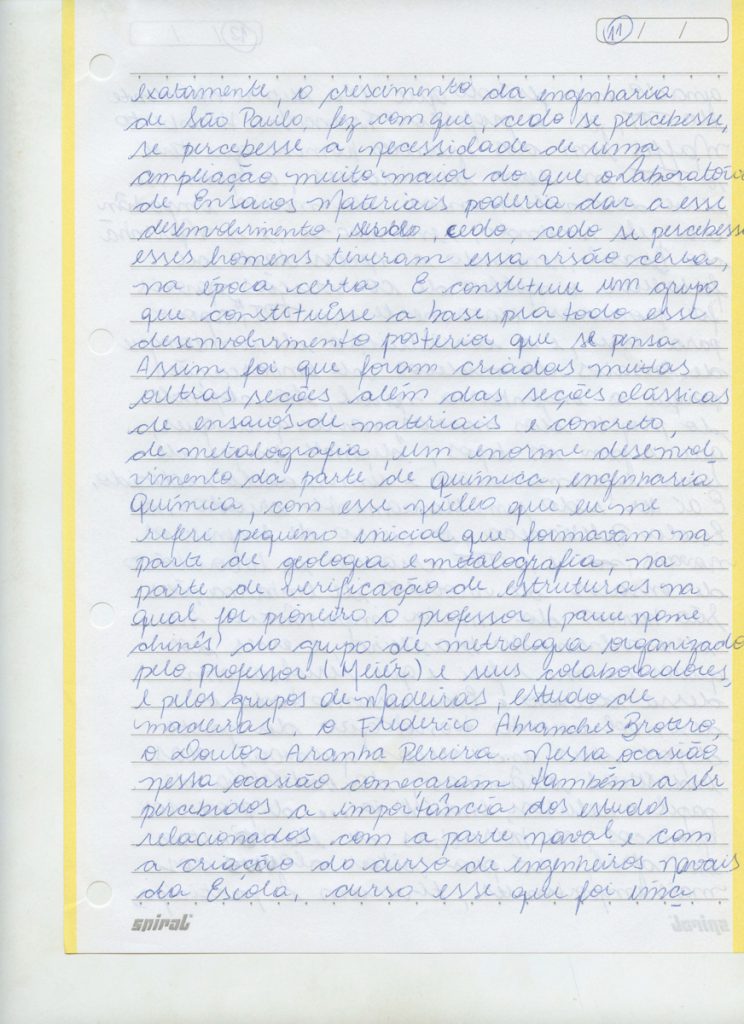 11 / /
exatamente, o crescimento da engenharia
de São Paulo, fez com que, cedo se percebesse,
se percebesse a necessidade de uma
ampliação muito maior do que o Laboratório
de Ensaios Materiais poderia dar a esse
desenvolvimento, cedo, cedo se percebesse
esses homens tiveram essa visão certa,
na época certa. E constituiu um grupo
que constituísse a base pra todo esse
desenvolvimento posterior que se pensa.
Assim foi que foram criadas muitas
outras seções além das seções clássicas
de ensaios de materiais e concreto,
de metalografia, um enorme desenvol
vimento da parte de Química, engenharia
Química, com esse núcleo que eu me
referi pequeno inicial que formavam na
parte de geologia e metalografia, na
parte de verificação de estruturas na
qual foi pioneiro o professor (parece nome
chinês) do grupo de metrologia organizado
pelo professor (Meier) e seus colaboradores,
e pelos grupos de Madeiras, estudo de
madeiras, o Frederico Abranches Brotero,
o Doutor Aranha Pereira. Nessa ocasião,
nessa ocasião começaram também a ser
percebidos a importância dos estudos
relacionados com a parte naval e com
a criação do curso de engenheiros navais
da Escola, curso esse que foi uma
spiral